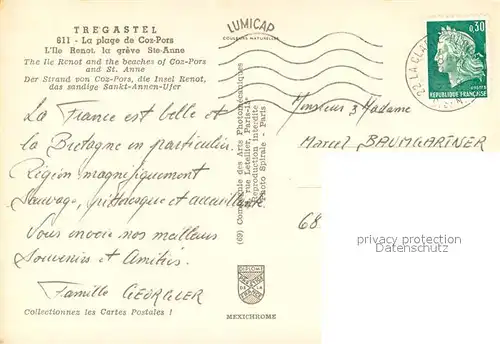 TREGASTEL
611 - La plage de Coz-Pors
L'Ile Renot, la grève Ste-Anne
The Ile Renot and the beaches of Coz-Pors
and St. Anne
Der Strand von Coz-Pors, die Insel Renot,
das sandige Sankt-Annen-Ufer
La France est belle et
la Bretagne en particulier.
Région magnifiquement
Sauvage, pittoresque et accueillante
Vous envoie nos meilleurs
Souvenirs et Amitiés.
Famille GEORGLER
Collectionnez les Cartes Postales !
LUMICAP
COULEURS NATURELLES
(69) Compagnie des Arts Photomécaniques
rue Letellier, Paris-15
Reproduction interdite
Photo Spirale - Paris
DIPLOME
PRESTIGE
DE LA
FRANCE
MEXICHROME
0,30
REPUBLIQUE FRANÇAISE
22 LA CLA
Monsieur & Madame
Marcel BAUMGARTNER
68
privacy protection
watermark